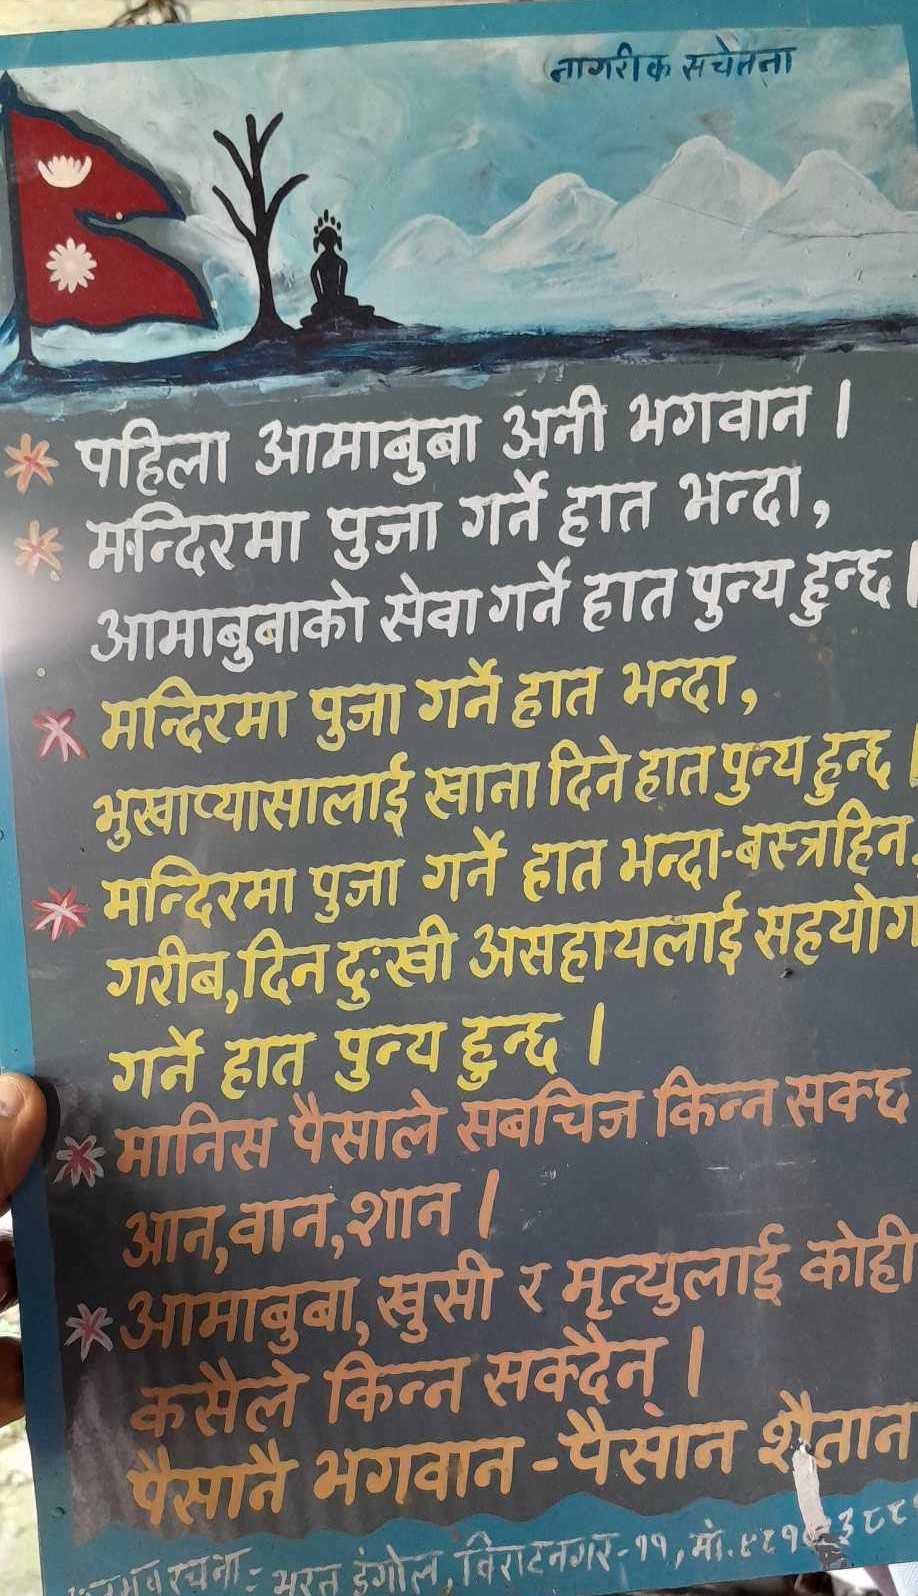 नागरीक सचेतना
पहिला आमाबुबा अनी भगवान ।
मन्दिरमा पुजा गर्ने हात भन्दा,
आमाबुबाको सेवा गर्ने हात पुन्य हुन्छ ।
मन्दिरमा पुजा गर्ने हात भन्दा,
भुखाप्यासालाई खाना दिने हात पुन्य हुन्छ ।
मन्दिरमा पुजा गर्ने हात भन्दा-बस्त्रहिन,
गरीब,दिन दुःखी असहायलाई सहयोग
गर्ने हात पुन्य हुन्छ ।
मानिस पैसाले सबचिज किन्न सक्छ
आन,वान,शान ।
आमाबुबा,खुसी र मृत्युलाई कोही
कसैले किन्न सक्दैन् ।
पैसानै भगवान - पैसांन शैतान
रचना: भरत डंगोल, विराटनगर-११, मो.